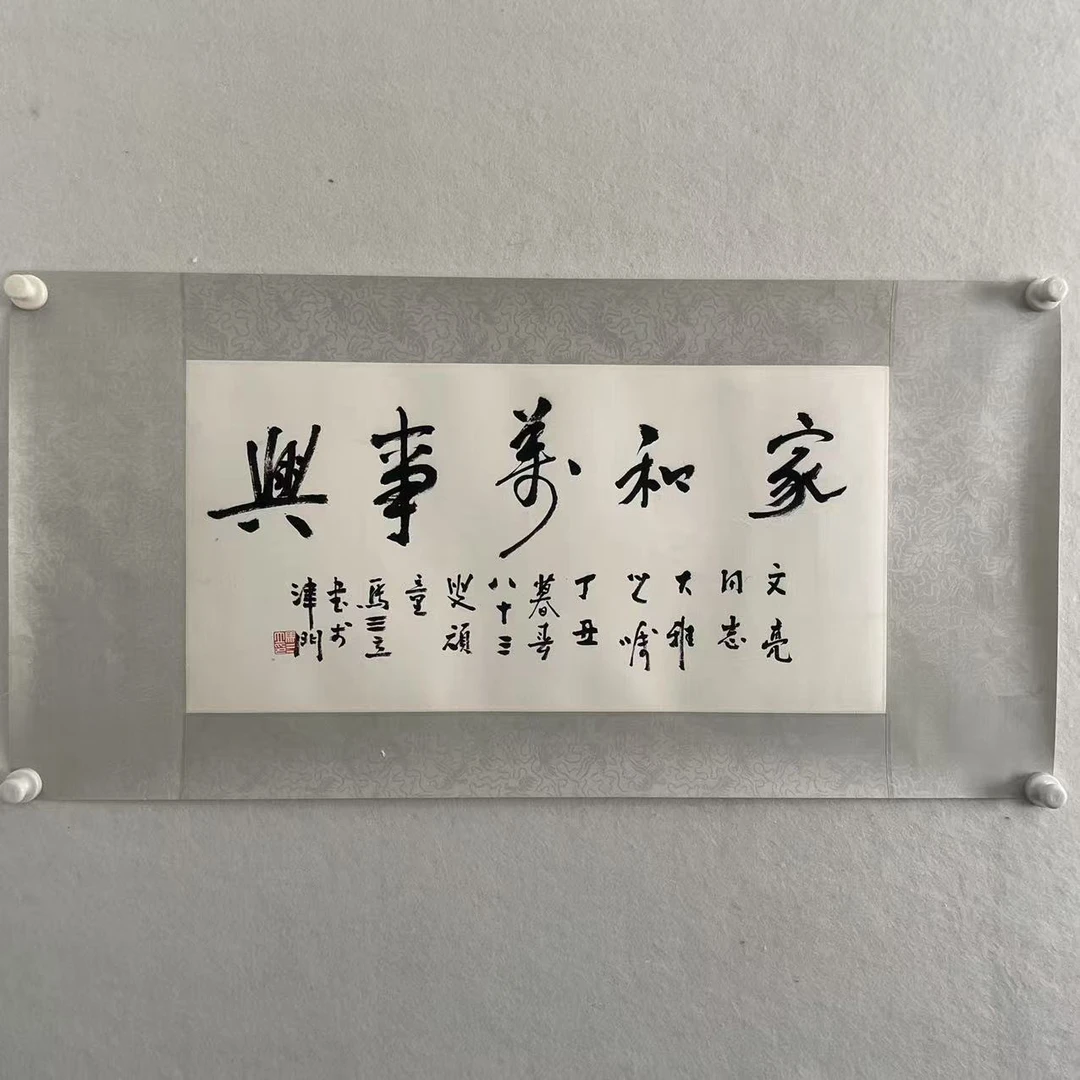 家和萬事興
文亮
同志
大雅
之嘱
丁丑
暮春
八十三
叟頑
童
馬三立
書於
津門